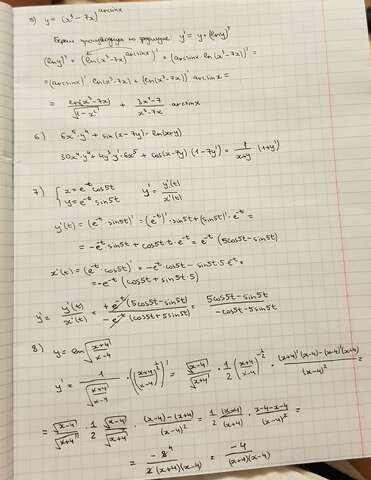 5) y = (x³ - 7x)^arcsinx
Берем производную по формуле: y' = y · (ln y)'
(ln y)' = (ln(x³-7x)^arcsinx)' = (arcsinx · ln(x³-7x))' =
= (arcsinx)' · ln(x³-7x) + (ln(x³-7x))' · arcsinx =
= ln(x³-7x)/√(1-x²) + (3x²-7)/(x³-7x) · arcsinx
6) 6x⁵ · y⁴ + sin(x-7y) = ln(x+y)
30x⁴ · y⁴ + 4y³ · y' · 6x⁵ + cos(x-7y) · (1-7y') = 1/(x+y) · (1+y')
7) { x = e^-t cos5t
y = e^-t sin5t
y' = y'(t)/x'(t)
y'(t) = (e^-t · sin5t)' = (e^-t)' · sin5t + (sin5t)' · e^-t =
= -e^-t sin5t + cos5t · 5 · e^-t = e^-t (5cos5t - sin5t)
x'(t) = (e^-t · cos5t)' = -e^-t cos5t - sin5t · 5 e^-t =
= -e^-t (cos5t + sin5t · 5)
y' = y'(t)/x'(t) = + e^-t (5cos5t - sin5t)/-e^-t (cos5t + 5sin5t) = (5cos5t - sin5t)/(-cos5t - 5sin5t)
8) y = ln √((x+4)/(x-4))
y' = 1/√((x+4)/(x-4)) · (((x+4)/(x-4))^½)' = √(x-4)/√(x+4) · 1/2 · ((x+4)/(x-4))^-½ · ((x+4)'(x-4) - (x-4)'(x+4))/(x-4)² =
= √(x-4)/√(x+4) · 1/2 · √(x-4)/√(x+4) · ((x-4) - (x+4))/(x-4)² = 1/2 · (x-4)/(x+4) · (x-4-x-4)/(x-4)² =
= -8/2(x+4)(x-4) = -4/(x+4)(x-4)